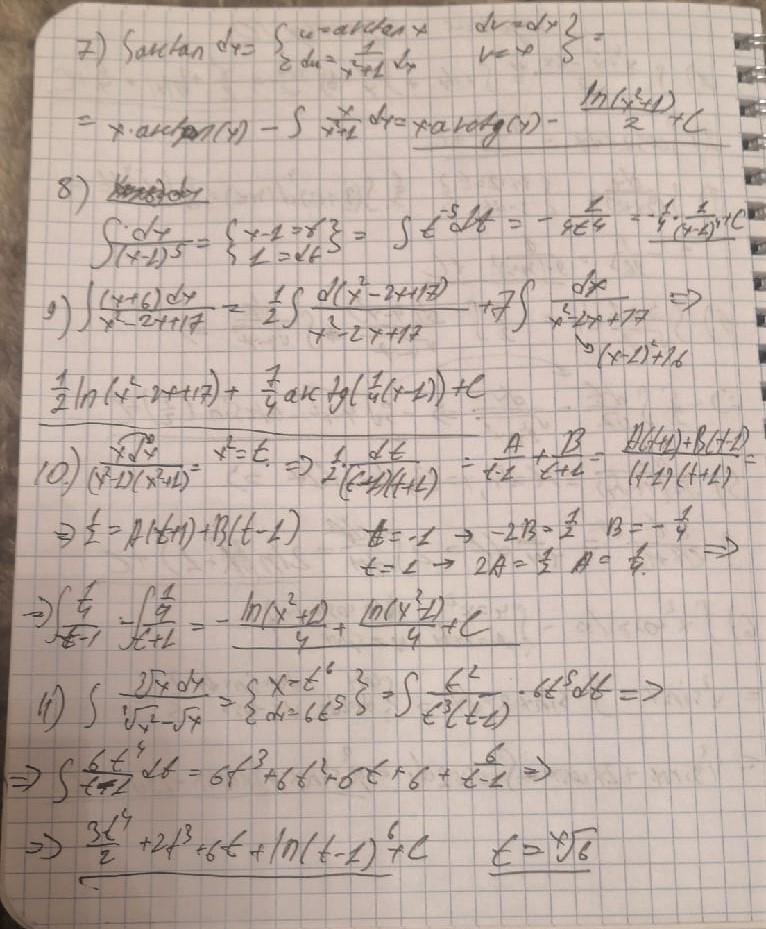 7) ∫arctan dx = { u = arctan x dv = dx du = 1/(x²+1) dx v = x } =
= x·arctan(x) − ∫ x/(x²+1) dx = x·arctg(x) − ln(x²+1)/2 + C
8)
∫ dx/(x−1)⁵ = { x−1 = t 1 = dt } = ∫ t⁻⁵ dt = − 1/4t⁴ = −1/4 · 1/(x−1)⁴ + C
9) ∫ (x+6)dx/(x²−2x+17) = 1/2 ∫ d(x²−2x+17)/(x²−2x+17) + 7 ∫ dx/(x²−2x+17) ⇒
(x−1)²+16
1/2 ln(x²−2x+17) + 7/4 arctg(1/4(x−1)) + C
10.) x dx/((x²−1)(x²+1)) = x² = t. ⇒ 1/2 · dt/((t−1)(t+1)) = A/(t−1) + B/(t+1) = (A(t+1)+B(t−1))/((t−1)(t+1)) =
⇒ 1/2 = A(t+1)+B(t−1) t = −1 → −2B = 1/2 B = −1/4
t = 1 → 2A = 1/2 A = 1/4. ⇒
⇒ ∫ (1/4)/(t−1) − ∫ (1/4)/(t+1) = − ln(x²+1)/4 + ln(x²−1)/4 + C
11) ∫ ∛x dx/(∛x² − √x) = { x = t⁶ dx = 6t⁵ } = ∫ t²/(t³(t−1)) · 6t⁵ dt ⇒
⇒ ∫ 6t⁴/(t−1) dt = 6t³+6t²+6t+6+ 6/(t−1) ⇒
⇒ 3t⁴/2 + 2t³ + 6t + ln(t−1)⁶ + C t = ˣ√6